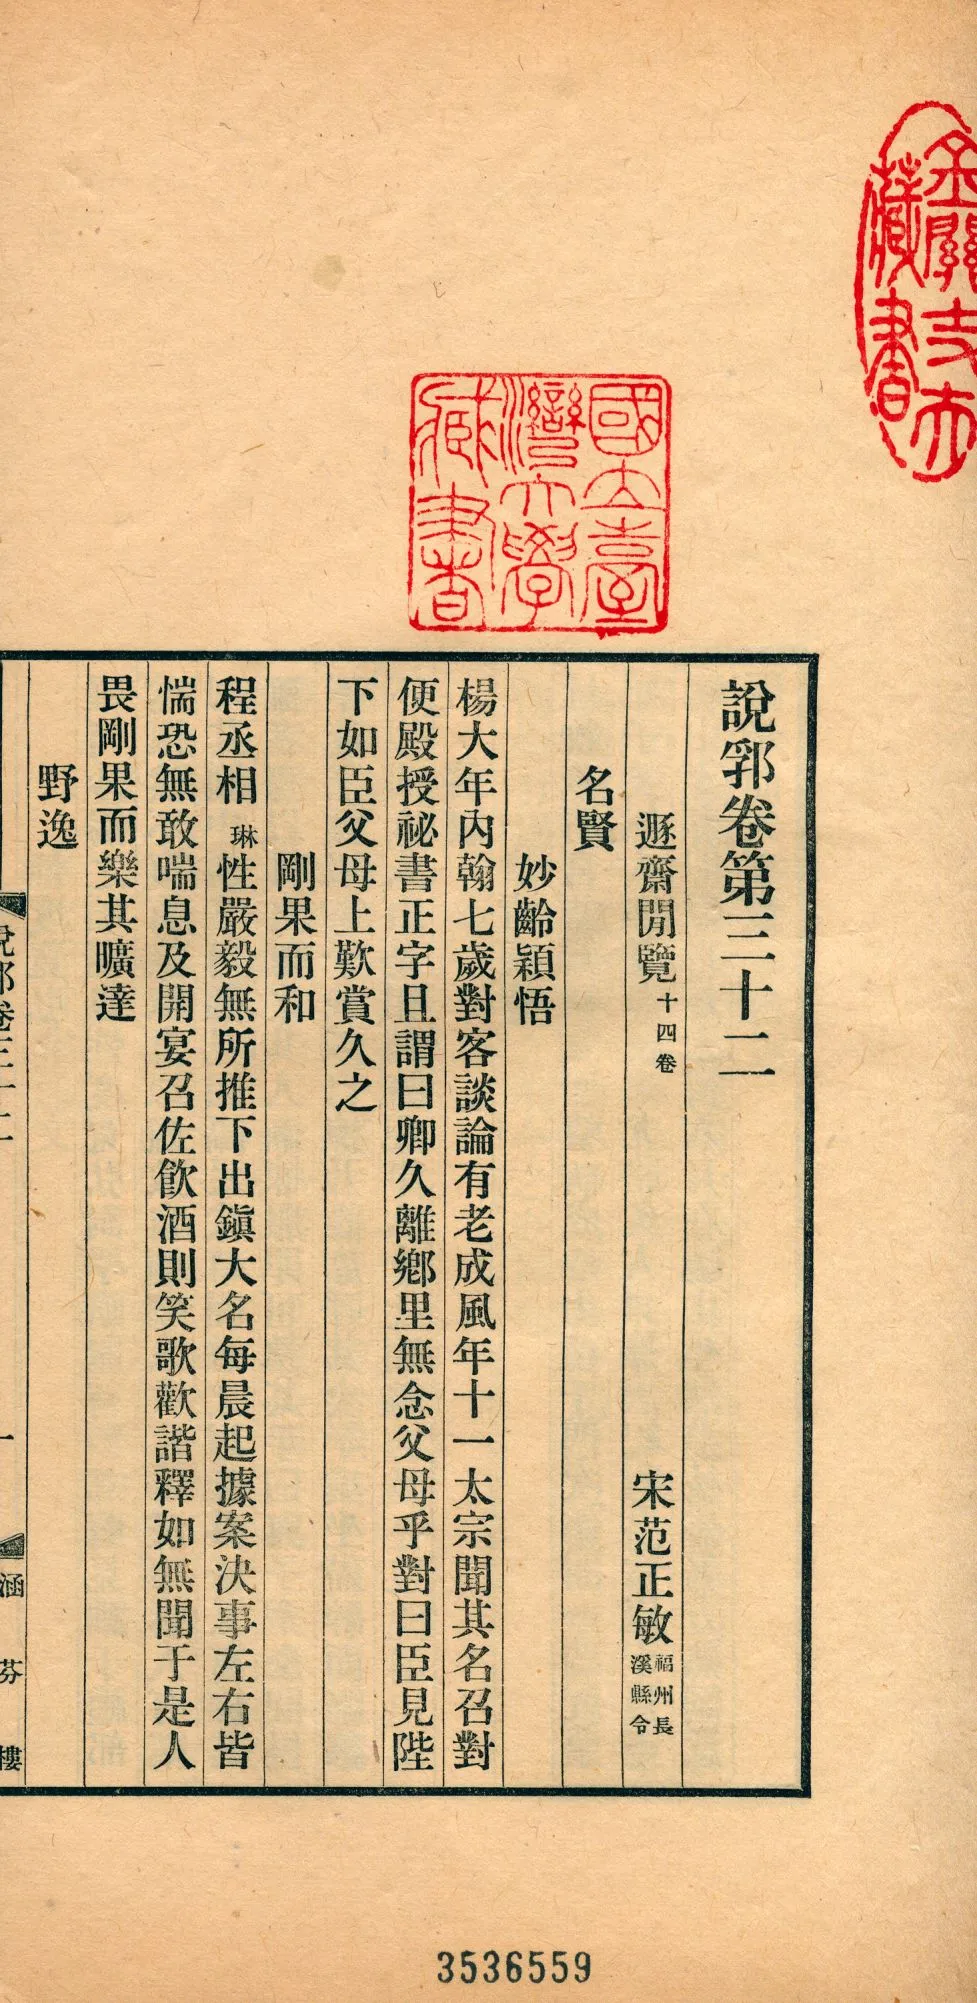 說郛卷第三十二
遯齋閒覽 十四卷 宋范正敏 福州長溪縣令
名賢
妙齡穎悟
楊大年內翰七歲對客談論有老成風年十一太宗聞其名召對
便殿授祕書正字且謂曰卿久離鄉里無念父母乎對曰臣見陛
下如臣父母上歎賞久之
剛果而和
程丞相琳性嚴毅無所推下出鎭大名每晨起據案決事左右皆
惴恐無敢喘息及開宴召佐飮酒則笑歌歡諧釋如無聞于是人
畏剛果而樂其曠達
野逸
說郛卷三十二 一 涵芬樓
國立臺
灣大學
藏書
藏書
3536559